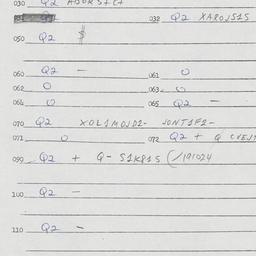 030 Q2
032 Q2 XAROJS1S
050 Q2
060 Q2 - 061 O
062 O 063 O
064 O 065 Q2 -
070 Q2 XOL1MOJD2- JONT1F2-
071 O 072 Q2 + Q
090 Q2 + Q- S1KP1S (/101024
100 Q2 -
110 Q2 -